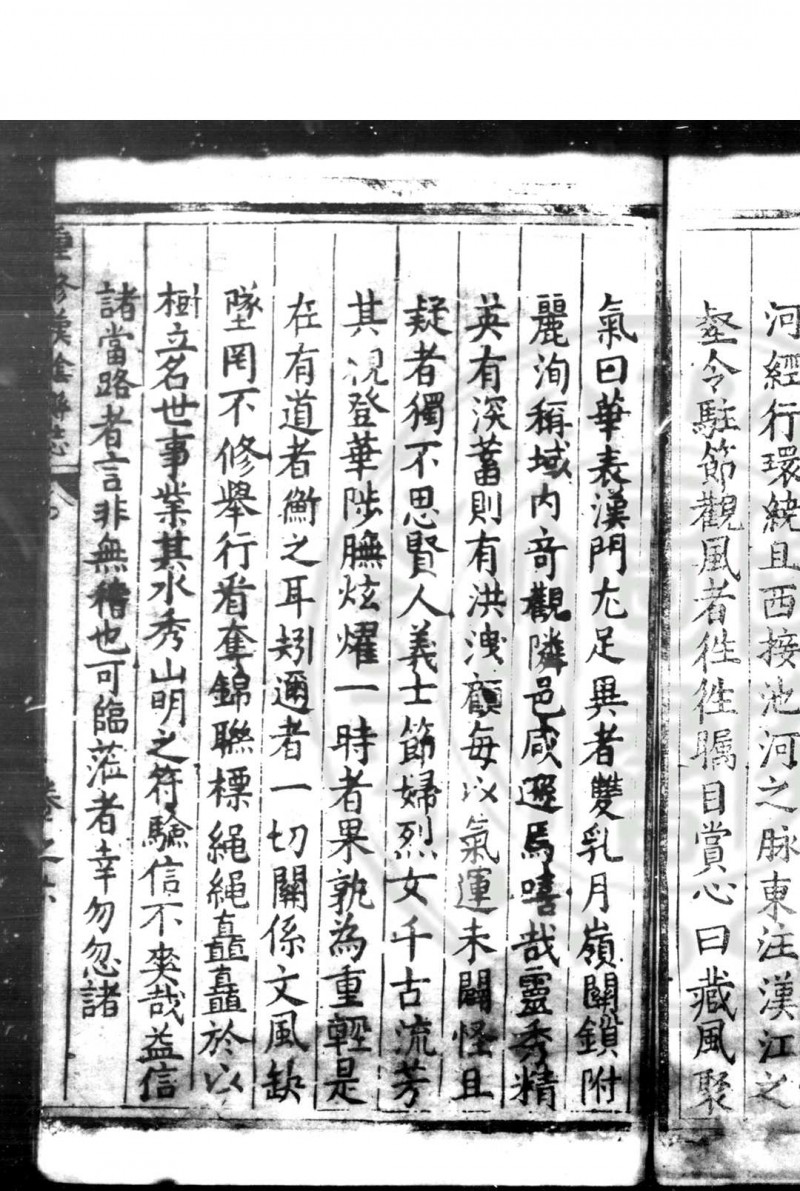 河經行環繞且西接池河之脉東注漢江之
壑令駐節觀風者徃徃矚目賞心曰藏風聚
氣曰華表漢門尢足異者雙乳月嶺關鎖附
麗洵稱域内竒觀隣邑咸遜焉嘻哉靈秀精
英有深蓄則有洪洩顧每以氣運未闢怪且
疑者獨不思賢人義士節婦烈女千古流芳
其視登華陟膴炫燿一時者果孰為重輕是
在有道者衡之耳矧邇者一切關係文風缺
墜罔不修舉行看奪錦聯標繩繩矗矗於以
樹立名世事業其水秀山明之符驗信不爽哉益信
諸當路者言非無稽也可臨蒞者幸勿忽諸
重修漢陰縣志
卷之六